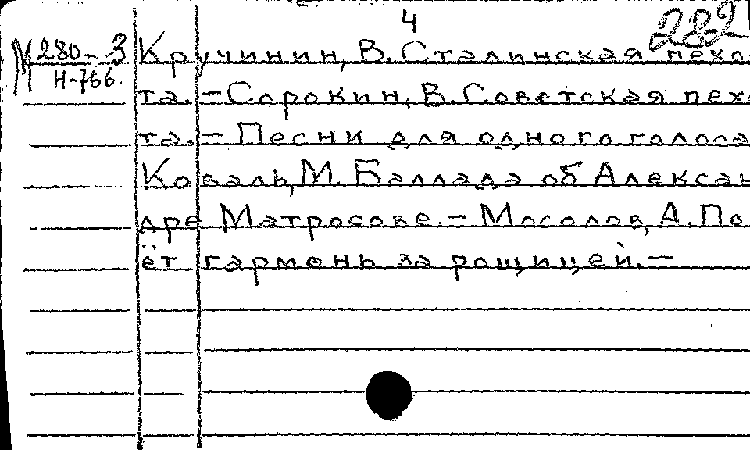 4
282
М 280-3 Кручинин, В. Сталинская пехо
Н-766. та. – Сорокин, В. Советская пехо
та. – Песни для одного голоса
Коваль, М. Баллада об Алексан
дре Матросове. – Мосолов, А. По
ёт гармонь за рощицей. –